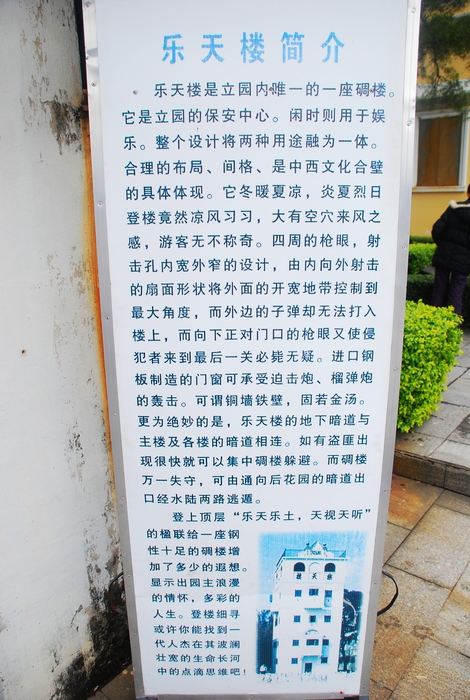 乐天楼简介
乐天楼是立园内唯一的一座碉楼。
它是立园的保安中心。闲时则用于娱
乐。整个设计将两种用途融为一体。
合理的布局、间格、是中西文化合壁
的具体体现。它冬暖夏凉，炎夏烈日
登楼竟然凉风习习，大有空穴来风之
感，游客无不称奇。四周的枪眼，射
击孔内宽外窄的设计，由内向外射击
的扇面形状将外面的开宽地带控制到
最大角度，而外边的子弹却无法打入
楼上，而向下正对门口的枪眼又使侵
犯者来到最后一关必毙无疑。进口钢
板制造的门窗可承受迫击炮、榴弹炮
的轰击。可谓铜墙铁壁，固若金汤。
更为绝妙的是，乐天楼的地下暗道与
主楼及各楼的暗道相连。如有盗匪出
现很快就可以集中碉楼躲避。而碉楼
万一失守，可由通向后花园的暗道出
口经水陆两路逃遁。
登上顶层“乐天乐土，天视天听”
的楹联给一座钢
性十足的碉楼增
加了多少的遐想。
显示出园主浪漫
的情怀，多彩的
人生。登楼细寻
或许你能找到一
代人杰在其波澜
壮宽的生命长河
中的点滴思维吧！
楼天乐